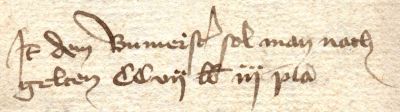 It dem Bumeister sol man nach
gelten CCvij lb iij pla